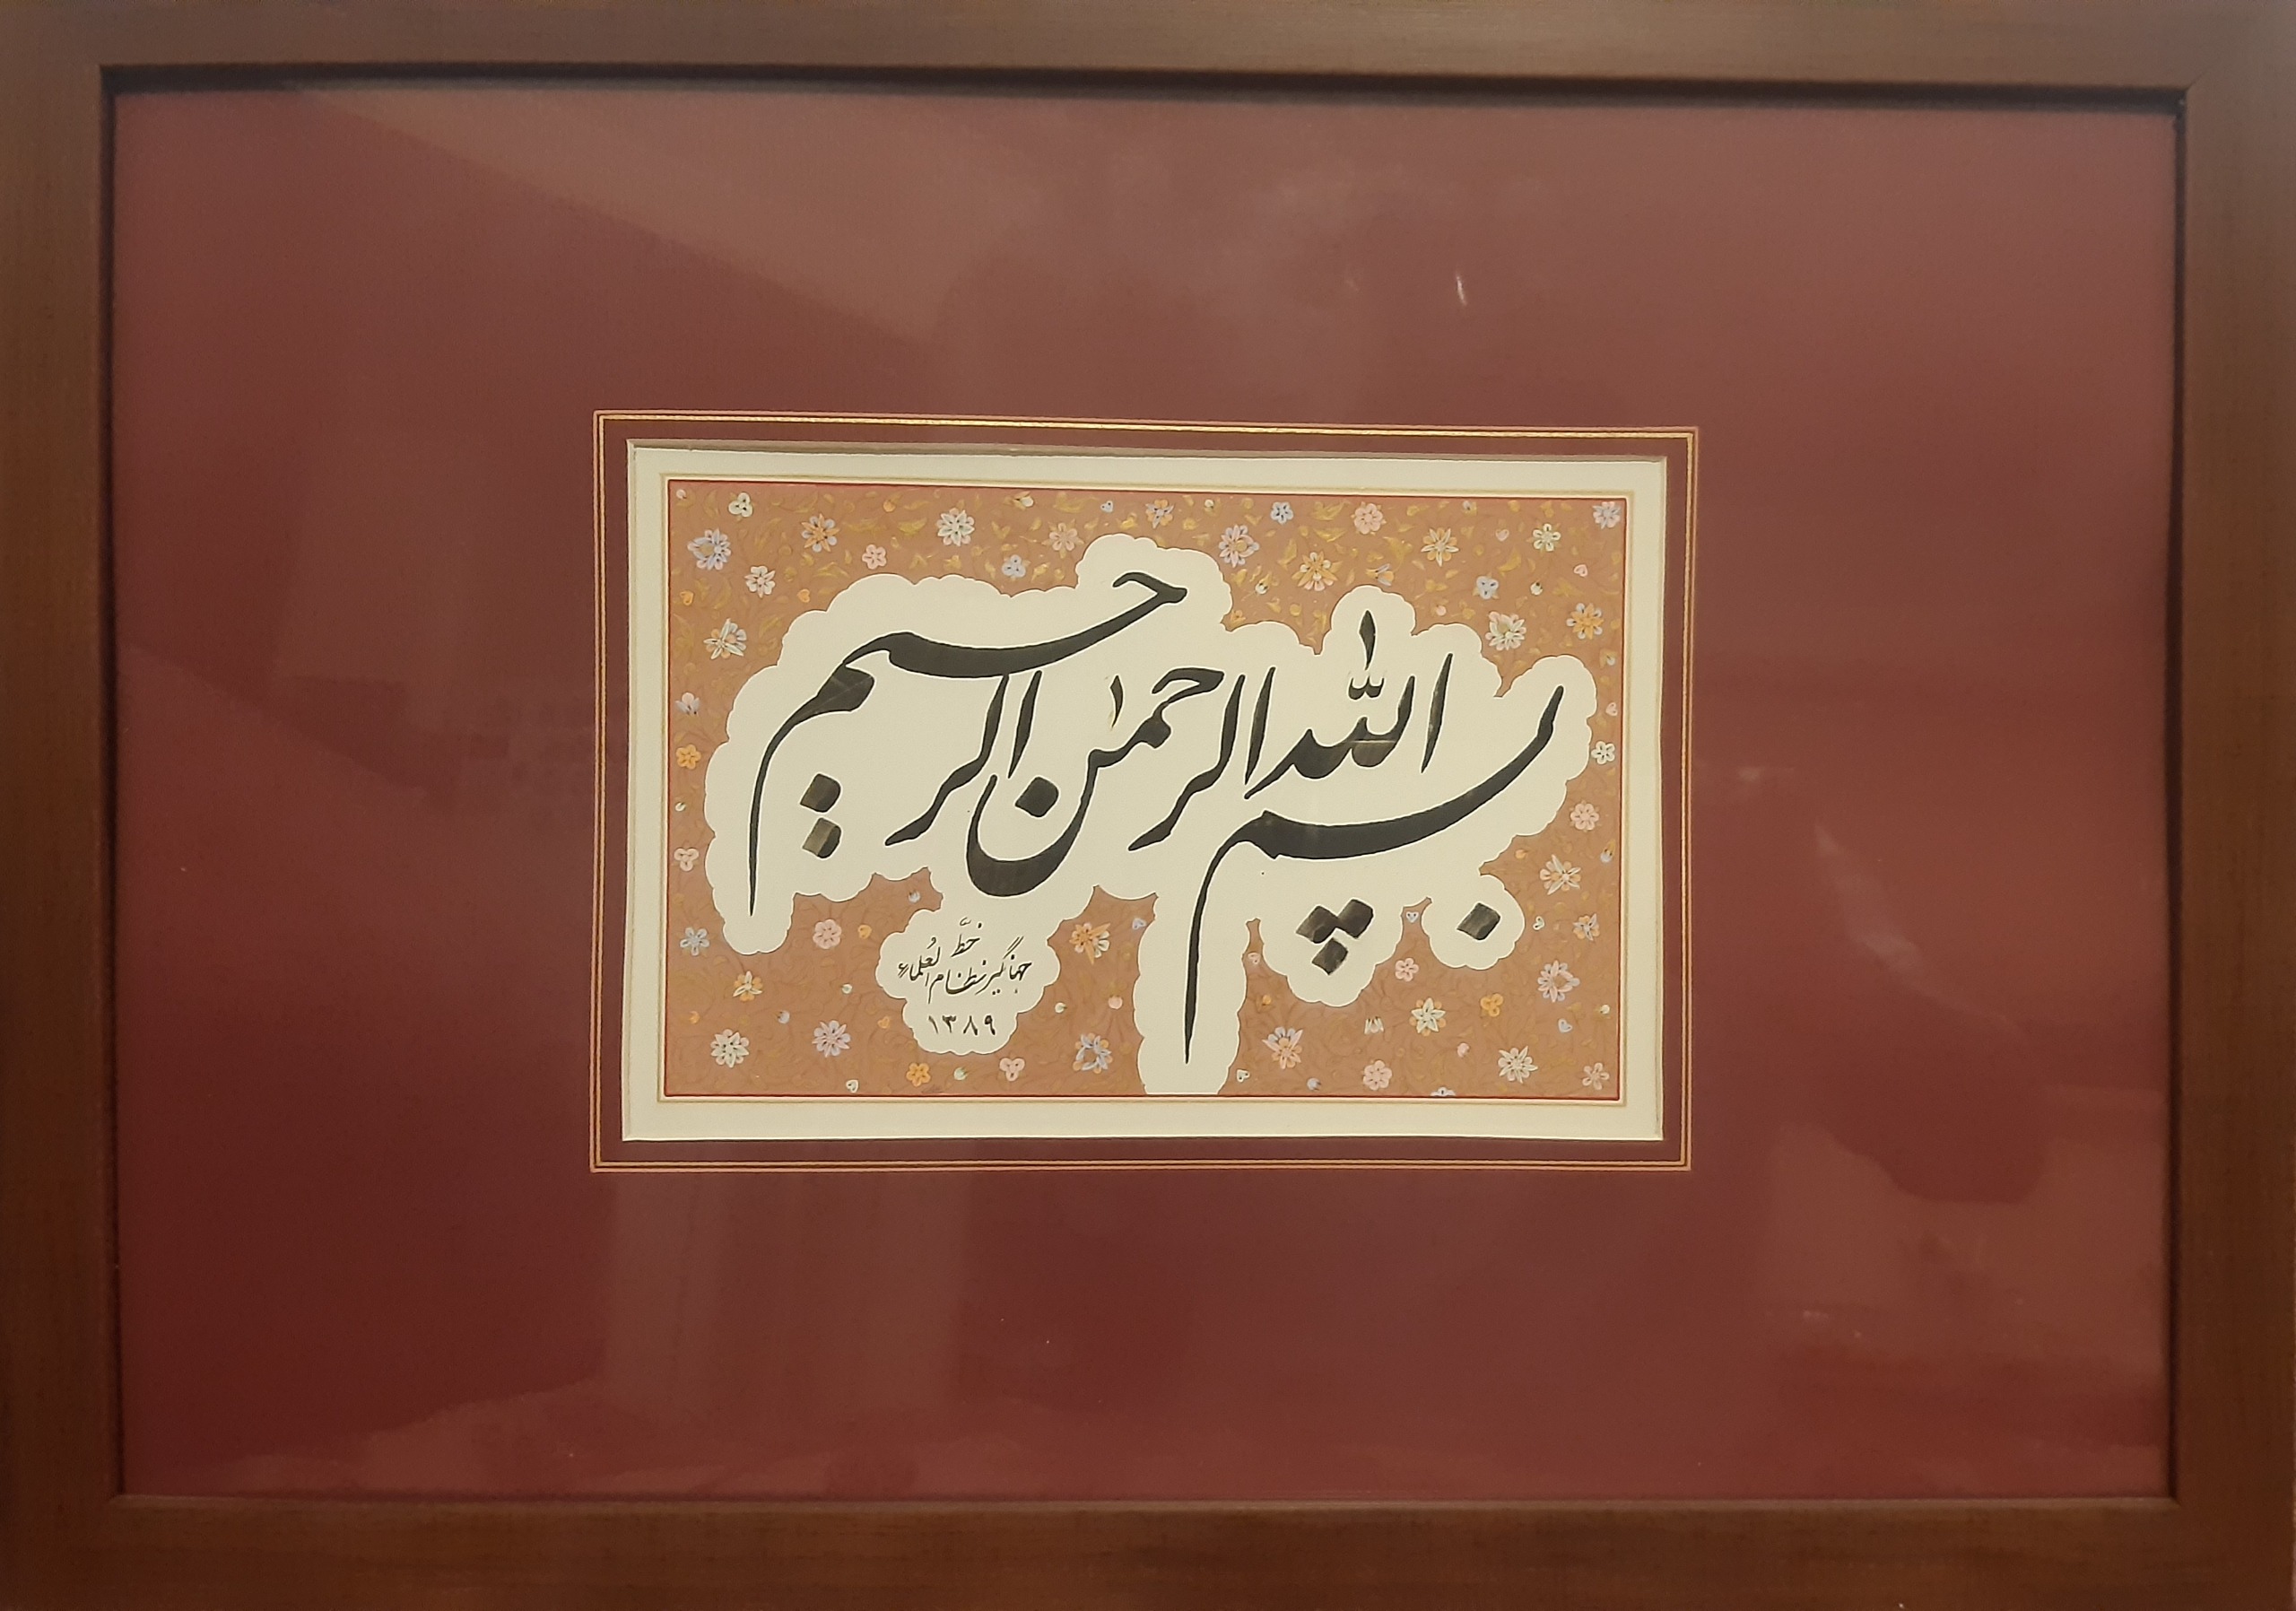 بسم الله الرحمن الرحیم
خطّ
جهانگیر نظام العُلماء
۱۳۸۹